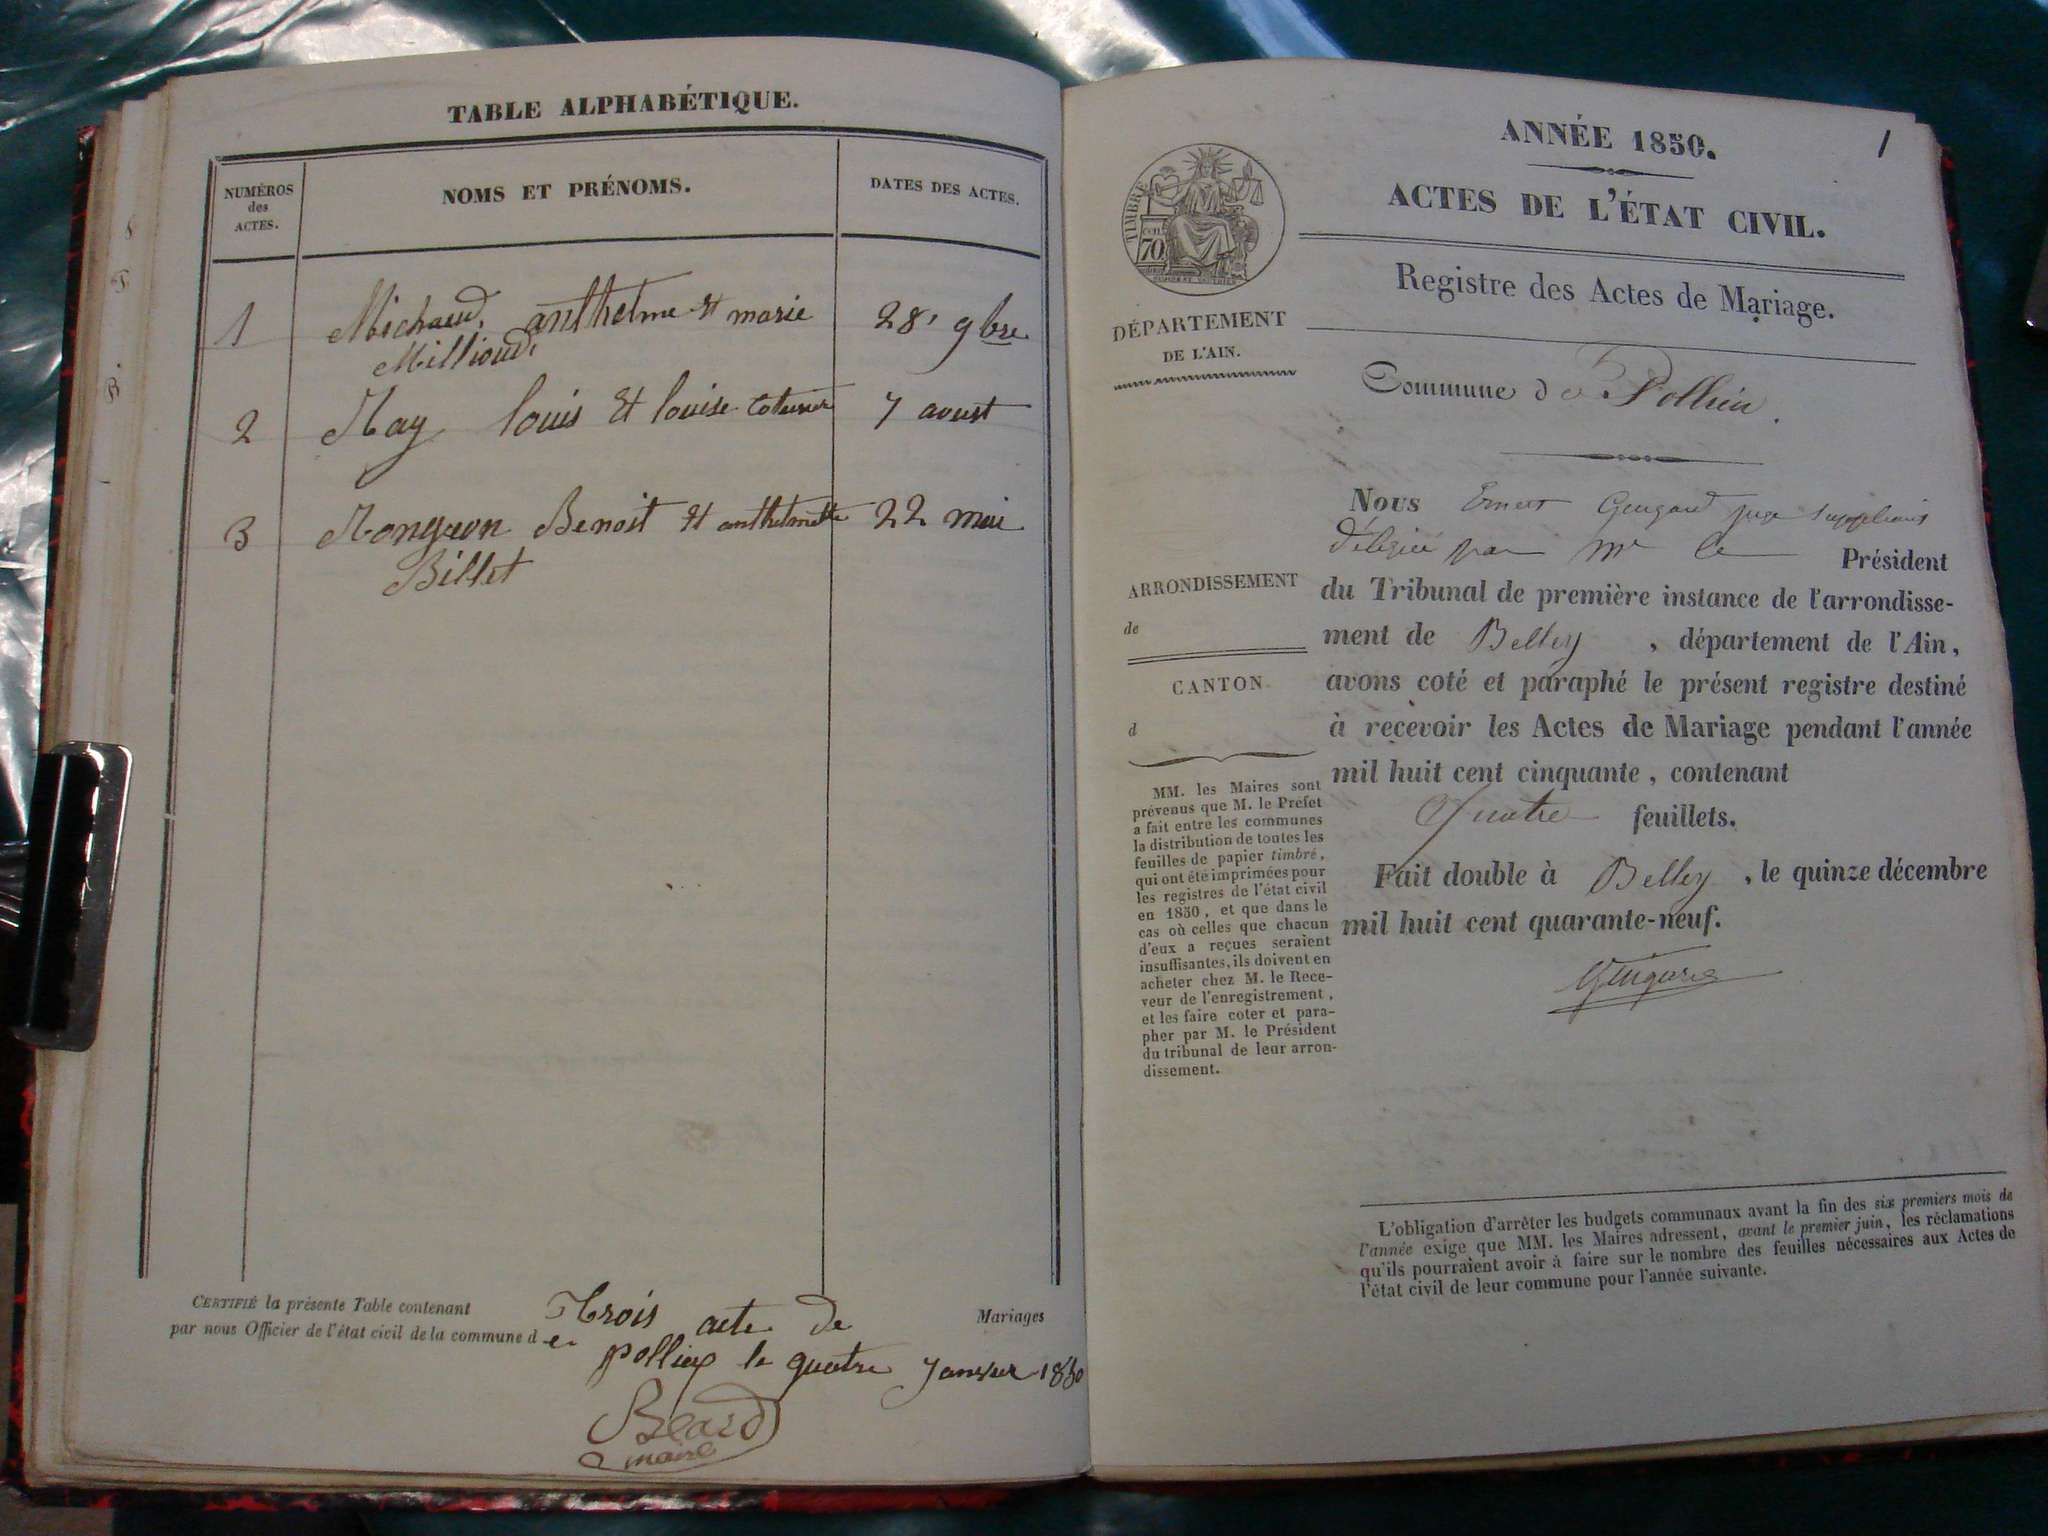 TABLE ALPHABÉTIQUE.
NUMÉROS
des
ACTES.
NOMS ET PRÉNOMS.
DATES DES ACTES.
1 Michaud, anthelme et marie 28, 9bre
Millioud,
2 May louis et louise 7 avust
3 Mongeon Benoit et anthelmette 22 mai
Billet
CERTIFIÉ la présente Table contenant Trois acte de Mariages
par nous Officier de l'état civil de la commune d e
pollieu le quatre Janvier 1850
Beard
maire
1
ANNÉE 1850.
ACTES DE L'ÉTAT CIVIL.
Registre des Actes de Mariage.
TIMBRE
cen
70
DÉPARTEMENT
DE L'AIN.
Commune de Pollieu.
ARRONDISSEMENT
de
CANTON
d
MM. les Maires sont
prévenus que M. le Préfet
a fait entre les communes
la distribution de toutes les
feuilles de papier timbré,
qui ont été imprimées pour
les registres de l'état civil
en 1850, et que dans le
cas où celles que chacun
d'eux a reçues seraient
insuffisantes, ils doivent en
acheter chez M. le Rece-
veur de l'enregistrement,
et les faire coter et para-
pher par M. le Président
du tribunal de leur arron-
dissement.
Nous Ernest juge suppléant
délégué par Mr le Président
du Tribunal de première instance de l'arrondisse-
ment de Belley, département de l'Ain,
avons coté et paraphé le présent registre destiné
à recevoir les Actes de Mariage pendant l'année
mil huit cent cinquante, contenant
Quatre feuillets.
Fait double à Belley, le quinze décembre
mil huit cent quarante-neuf.
L'obligation d'arrêter les budgets communaux avant la fin des six premiers mois de
l'année exige que MM. les Maires adressent, avant le premier juin, les réclamations
qu'ils pourraient avoir à faire sur le nombre des feuilles nécessaires aux Actes de
l'état civil de leur commune pour l'année suivante.